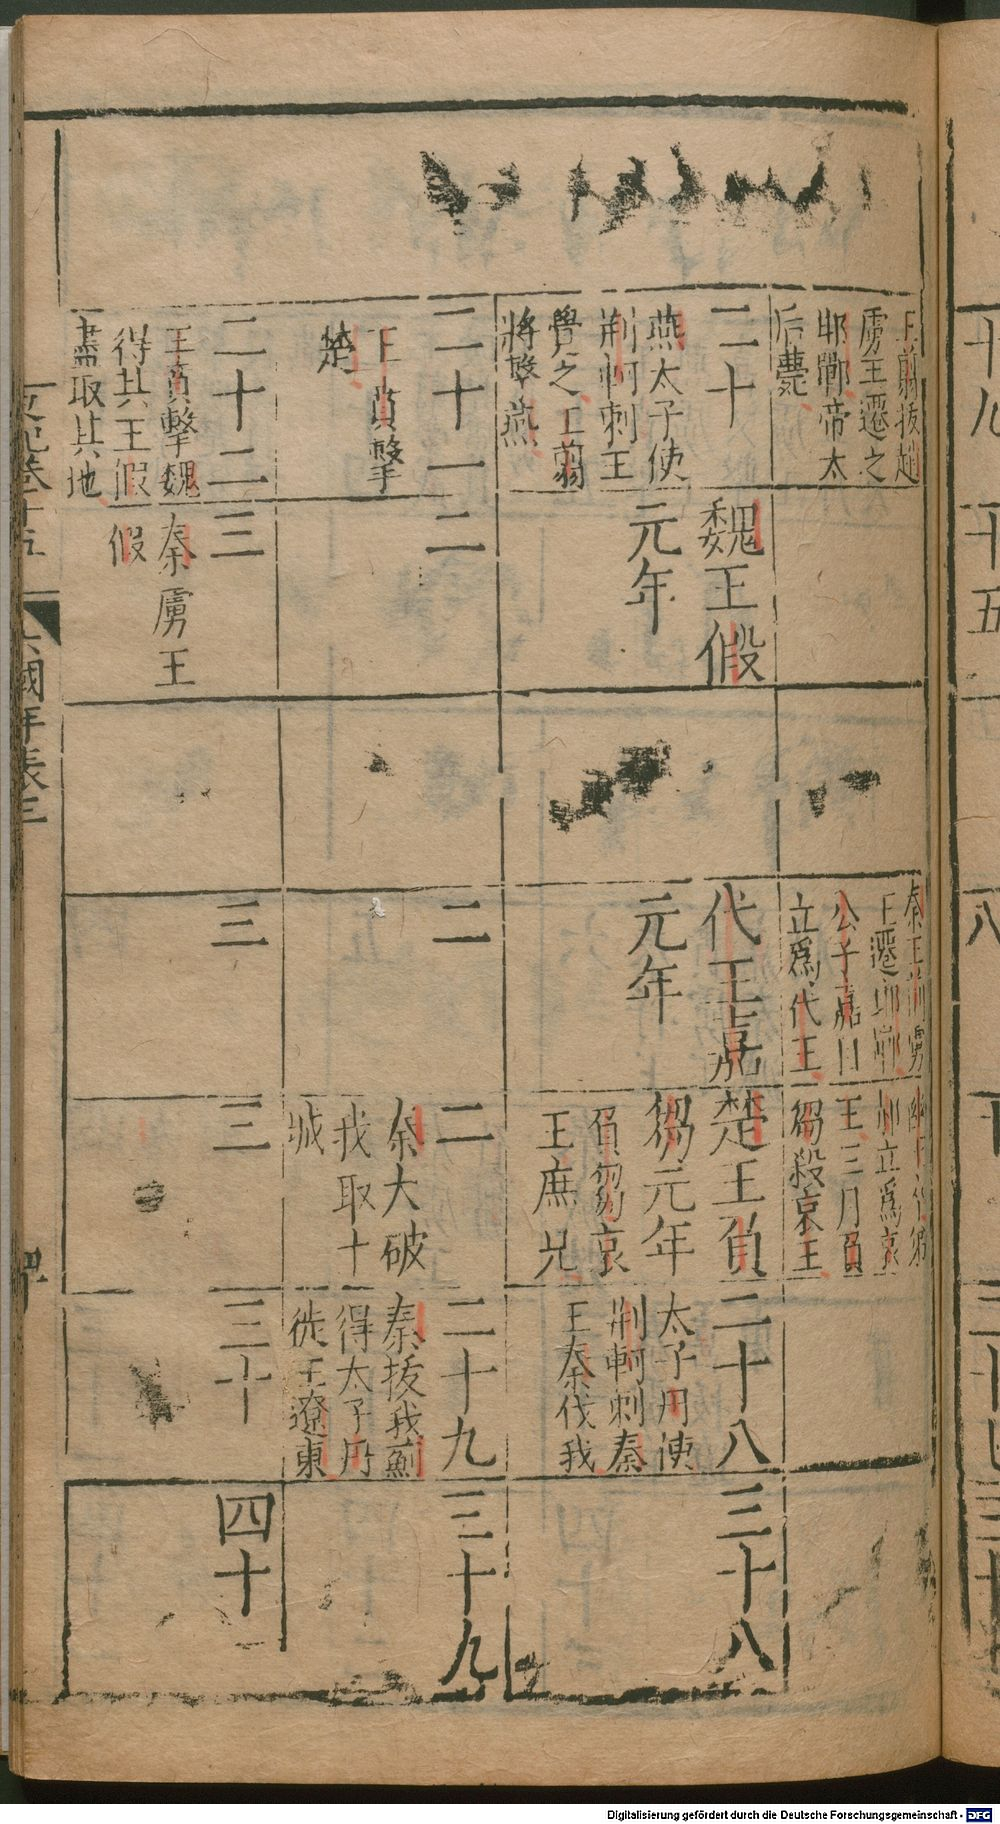 王翦拔趙
虜王遷之
邯鄲帝太
后薨
秦王翦虜
王遷邯鄲
公子嘉自
立爲代王
郝立爲哀
王三月負
芻殺哀王
二十
燕太子使
荆軻刺王
覺之王翦
將擊燕
魏王假
元年
代王嘉
元年
楚王負
芻元年
負芻哀
王庶兄
二十八
太子丹使
荆軻刺秦
王秦伐我
三十八
二十一
王賁擊
楚
二
二
二
秦大破
我取十
城
二十九
秦拔我薊
得太子丹
徙王遼東
三十九
二十二
王賁擊魏
得其王假
盡取其地
三
秦虜王
假
三
三
三十
四十
六國年表三
十五
八
Digitalisierung gefördert durch die Deutsche Forschungsgemeinschaft - DFG